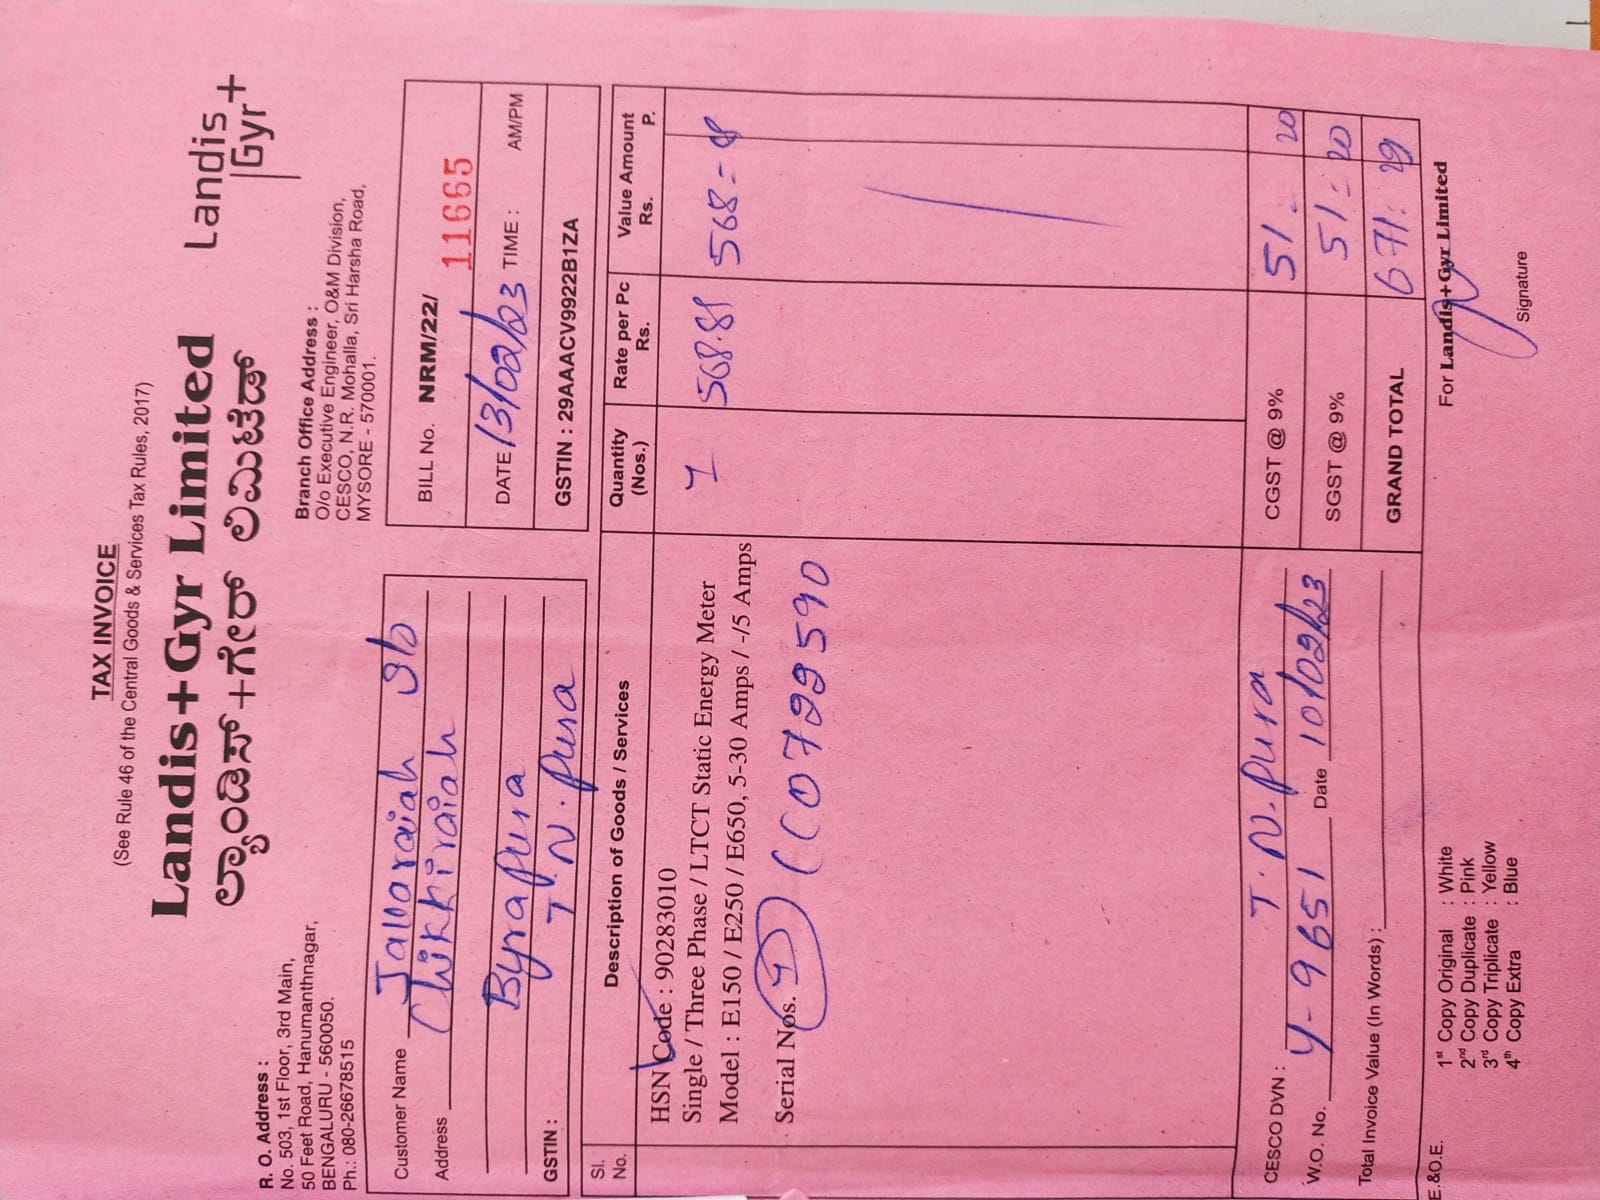 TAX INVOICE
(See Rule 46 of the Central Goods & Services Tax Rules, 2017)
Landis+Gyr Limited
ಲ್ಯಾಂಡಿಸ್+ಗೇರ್ ಲಿಮಿಟೆಡ್
Landis
Gyr+
R. O. Address :
No. 503, 1st Floor, 3rd Main,
50 Feet Road, Hanumanthnagar,
BENGALURU - 560050.
Ph.: 080-26678515
Branch Office Address :
O/o Executive Engineer, O&M Division,
CESCO, N.R. Mohalla, Sri Harsha Road,
MYSORE - 570001.
Customer Name Javaraiah S/o
Address Chikkiraiah
Byrapura
T. N. pura
GSTIN :
BILL No. NRM/22/ 11665
DATE 13/02/23 TIME : AM/PM
GSTIN : 29AAACV9922B1ZA
Sl. No. Description of Goods / Services Quantity (Nos.) Rate per Pc Rs. Value Amount Rs. P.
HSN Code : 90283010
Single / Three Phase / LTCT Static Energy Meter 1 568.81 568=
Model : E150 / E250 / E650, 5-30 Amps / -/5 Amps
Serial Nos. 1 CC0722590
CESCO DVN : T. N. pura
W.O. No. Y-9651 Date 10/02/23
Total Invoice Value (In Words) :
CGST @ 9% 51 - 20
SGST @ 9% 51 = 20
GRAND TOTAL 671:
E.&O.E.
1st Copy Original : White
2nd Copy Duplicate : Pink
3rd Copy Triplicate : Yellow
4th Copy Extra : Blue
For Landis+Gyr Limited
Signature